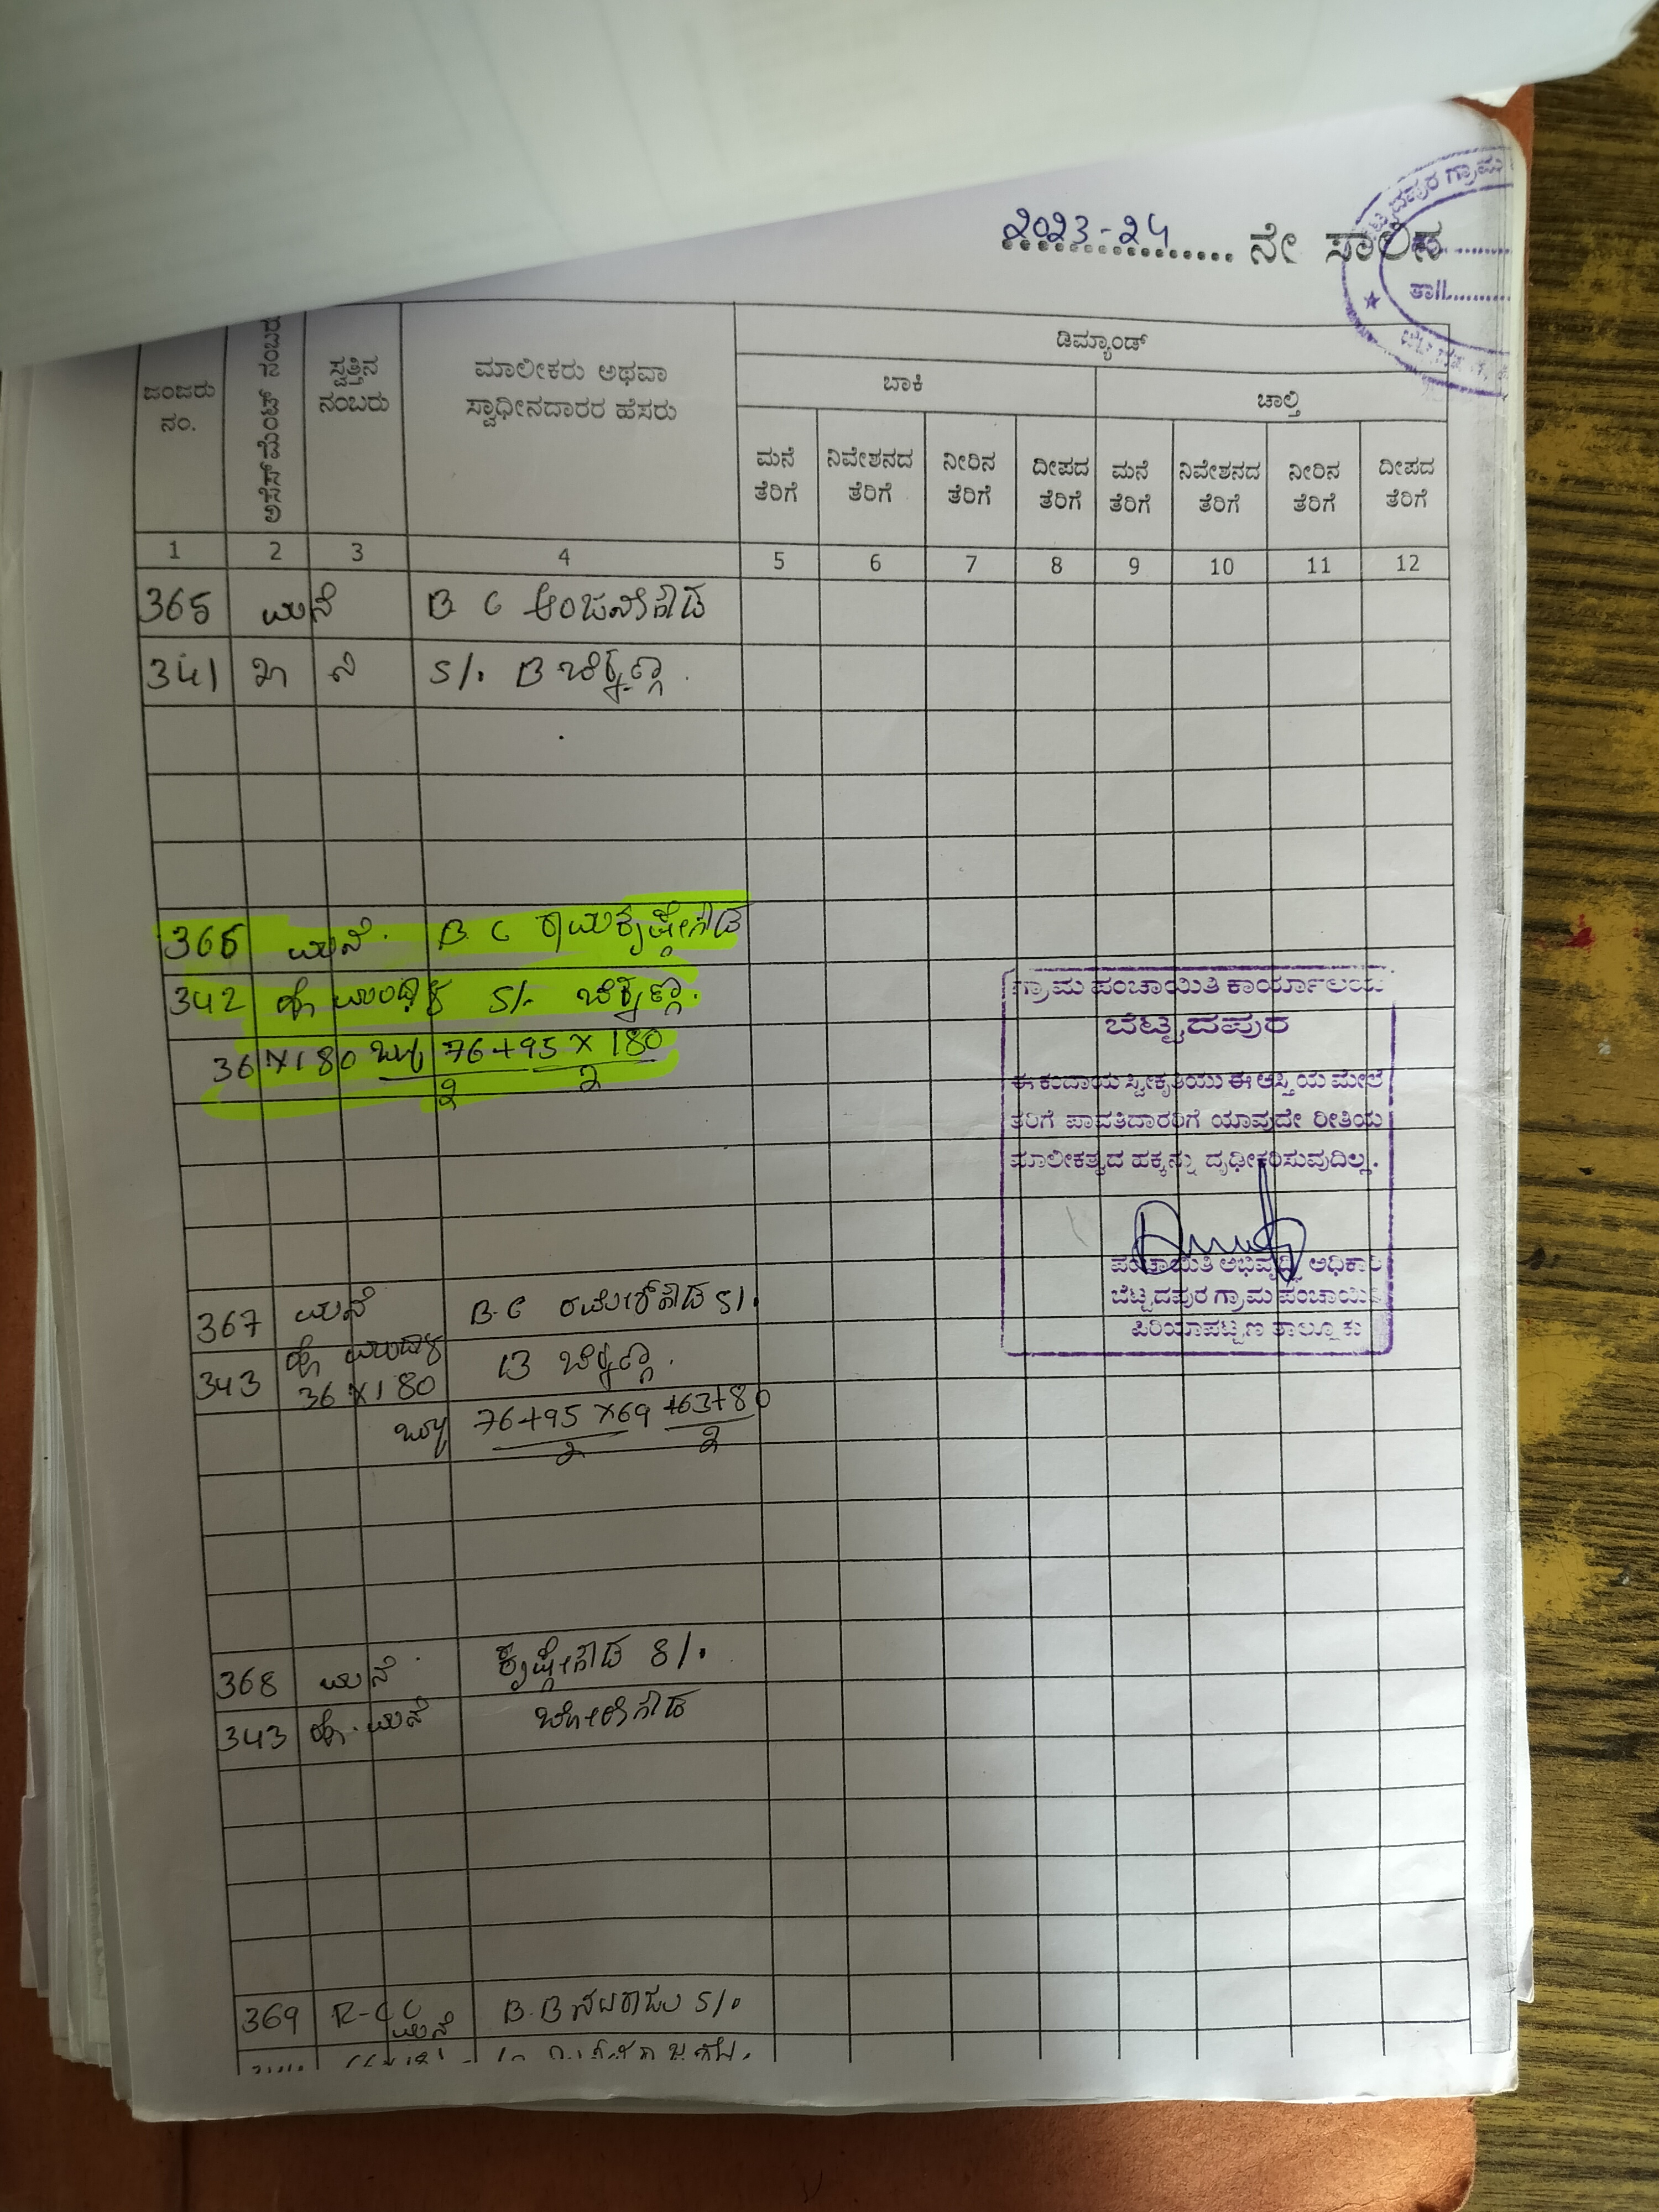 2023-24 ನೇ ಸಾಲಿನ
ಬೆಟ್ಟದಪುರ ಗ್ರಾಮ
ತಾ||
ಡಿಮ್ಯಾಂಡ್
ಬಾಕಿ ಚಾಲ್ತಿ
ಜಂಜರು ನಂ.
ಅಸೆಸ್‌ಮೆಂಟ್ ನಂಬರು
ಸ್ವತ್ತಿನ ನಂಬರು
ಮಾಲೀಕರು ಅಥವಾ
ಸ್ವಾಧೀನದಾರರ ಹೆಸರು
ಮನೆ ನಿವೇಶನದ ನೀರಿನ ದೀಪದ ಮನೆ ನಿವೇಶನದ ನೀರಿನ ದೀಪದ
ತೆರಿಗೆ ತೆರಿಗೆ ತೆರಿಗೆ ತೆರಿಗೆ ತೆರಿಗೆ ತೆರಿಗೆ ತೆರಿಗೆ ತೆರಿಗೆ
1 2 3 4 5 6 7 8 9 10 11 12
365 ಮನೆ B C
341 S/. B ಚಿಕ್ಕಣ್ಣ
366 ಮನೆ. B C ರಾಮಕೃಷ್ಣೇಗೌಡ
342 S/. ಚಿಕ್ಕಣ್ಣ.
36×180 76+95 × 180
2 2
ಗ್ರಾಮ ಪಂಚಾಯಿತಿ ಕಾರ್ಯಾಲಯ
ಬೆಟ್ಟದಪುರ
ಈ ಕಂದಾಯ ಸ್ವೀಕೃತಿಯು ಈ ಆಸ್ತಿಯ ಮೇಲೆ
ತೆರಿಗೆ ಪಾವತಿದಾರರಿಗೆ ಯಾವುದೇ ರೀತಿಯ
ಮಾಲೀಕತ್ವದ ಹಕ್ಕನ್ನು ದೃಢೀಕರಿಸುವುದಿಲ್ಲ.
ಪಂಚಾಯಿತಿ ಅಭಿವೃದ್ಧಿ ಅಧಿಕಾರಿ
ಬೆಟ್ಟದಪುರ ಗ್ರಾಮ ಪಂಚಾಯಿತಿ
ಪಿರಿಯಾಪಟ್ಟಣ ತಾಲ್ಲೂಕು
367 ಮನೆ B.C S/.
343 B ಚಿಕ್ಕಣ್ಣ.
36×180
76+95 ×69 +63+80
2 2
368 ಮನೆ ಕೃಷ್ಣೇಗೌಡ S/.
343 ಮನೆ
369 R-CC ಮನೆ B.B S/.